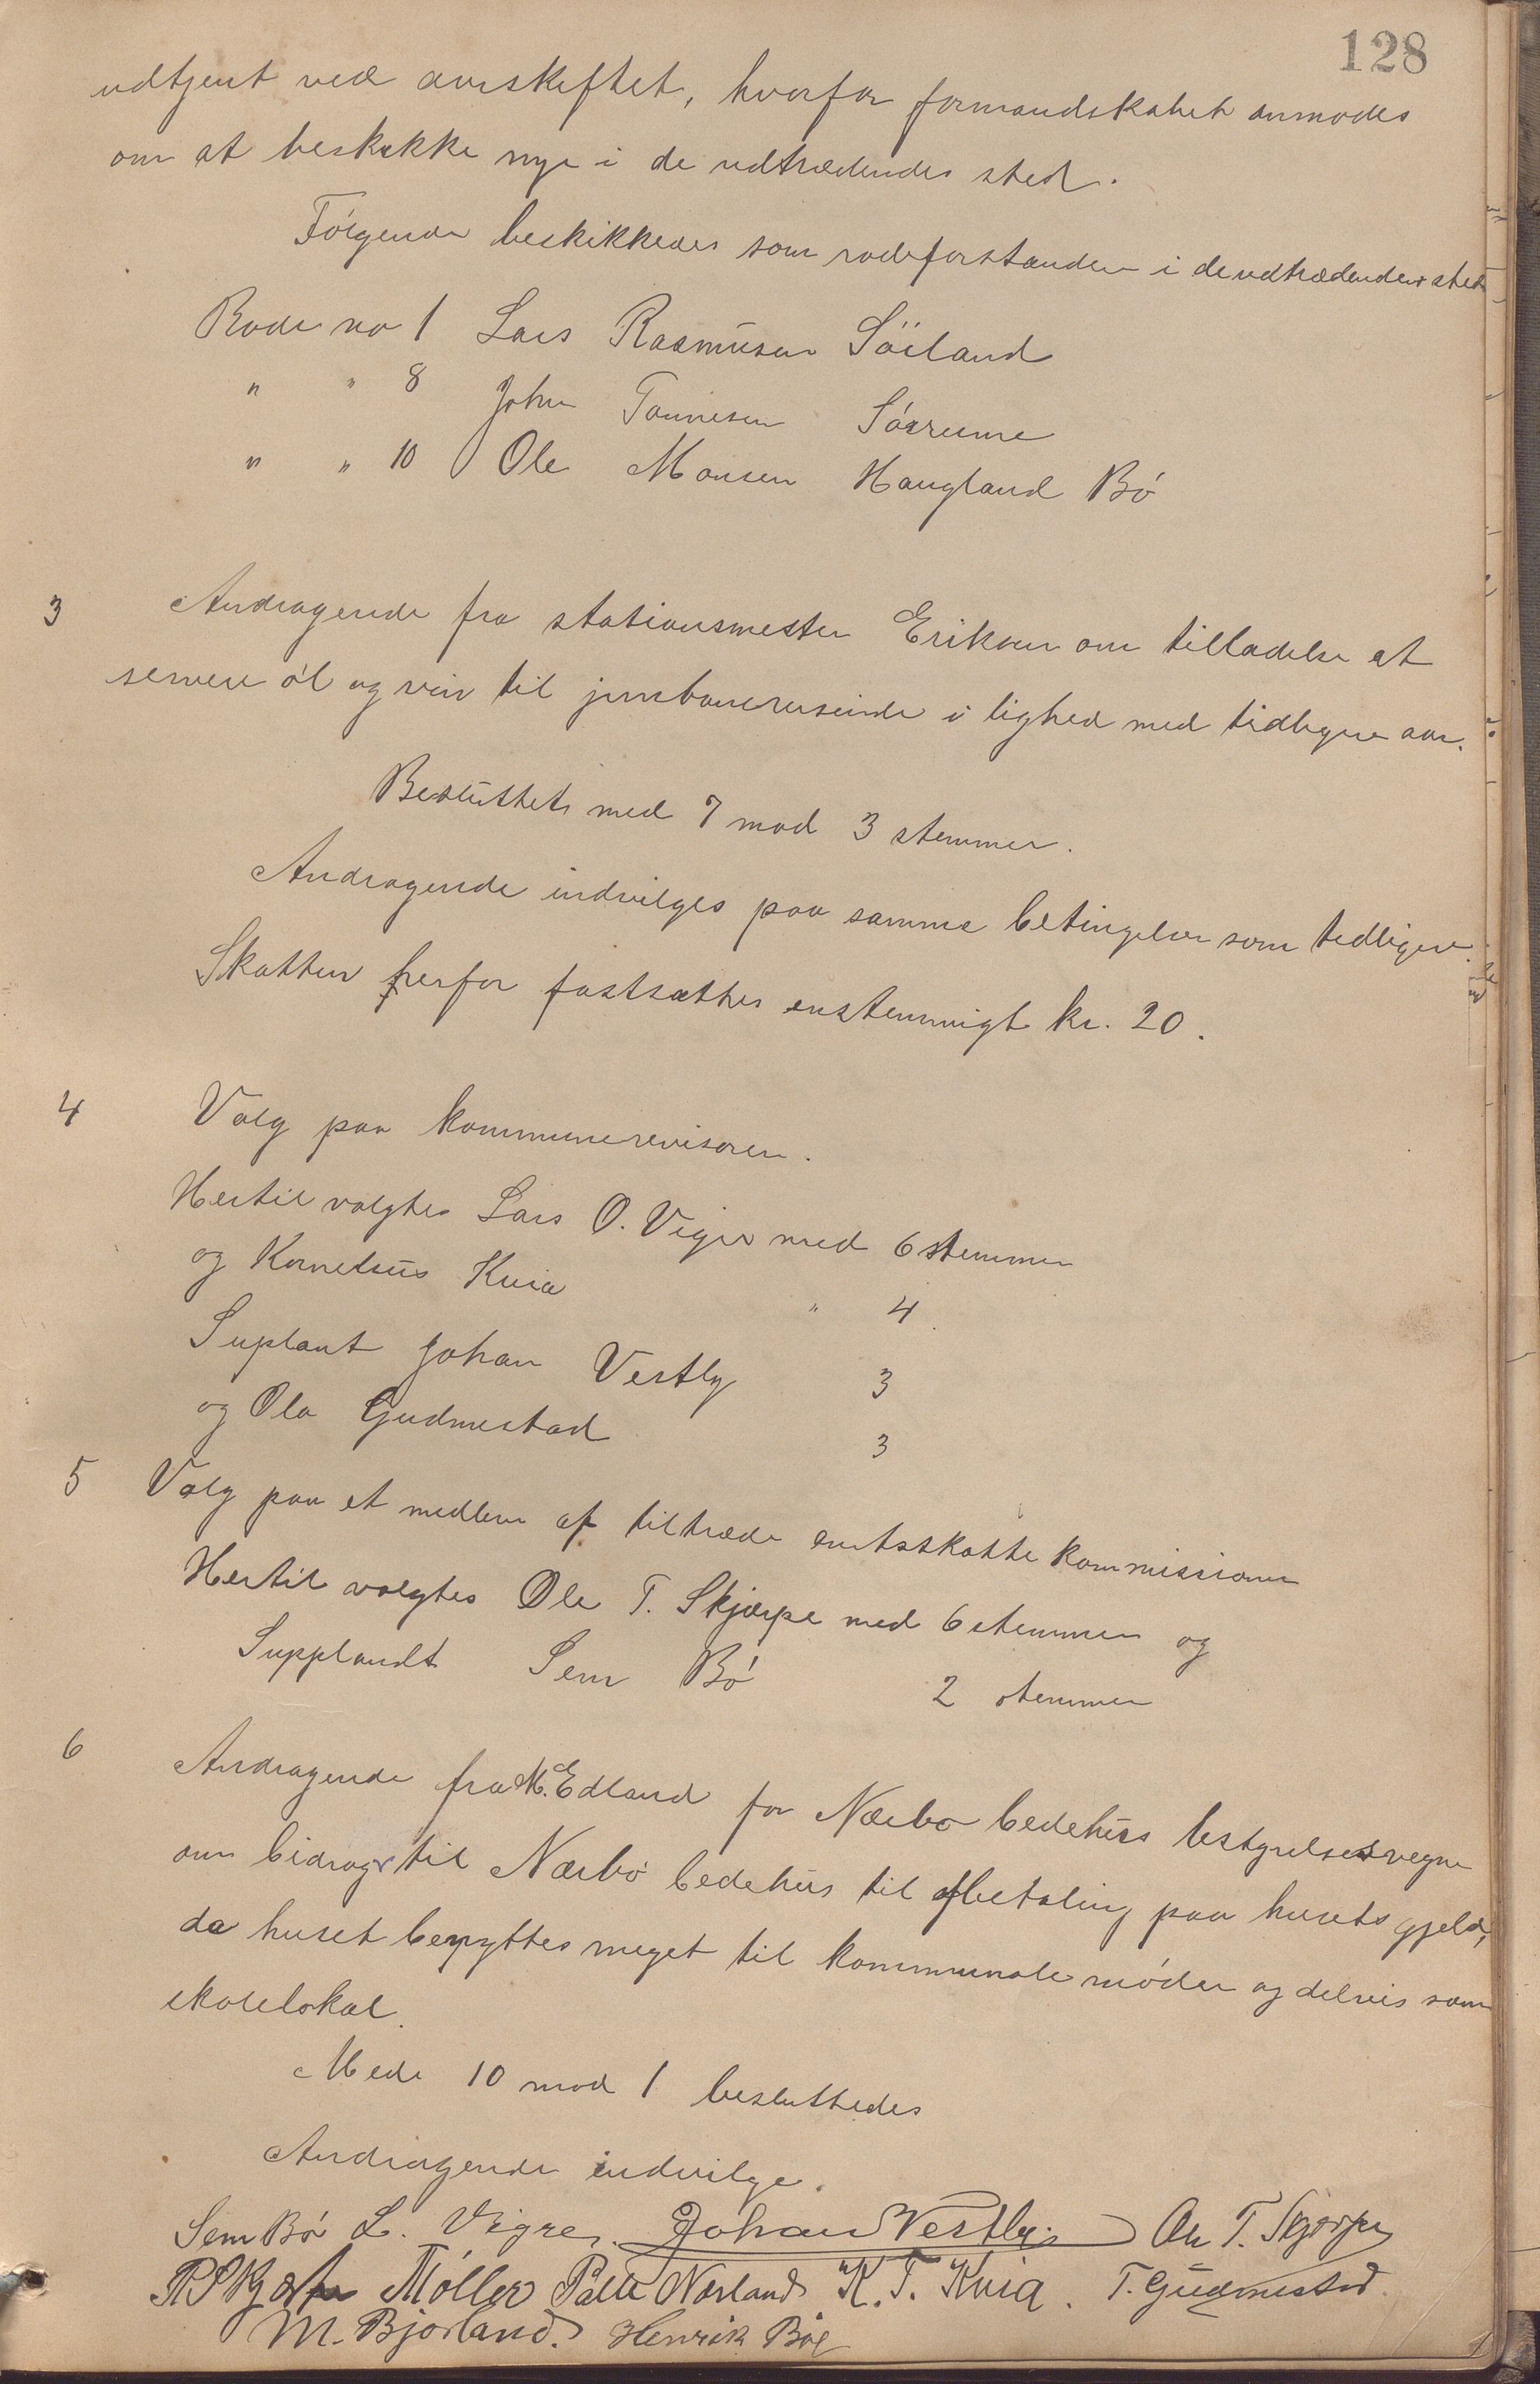 128
udtjent ved aarsskiftet, hvorfor formandskabet anmodes
om at beskikke nye i de udtrædendes sted.
Følgende beskikkedes som rodeforstander i de udtrædendes sted
Rode no 1 Lars Rasmusen Söiland
" " 8 John Tonnesen
" " 10 Ole Monsen Haugland Bö
3 Andragende fra stationsmester Eriksen om tilladelse at
servere öl og vin til jernbanereisende i lighed med tidligere aar.
Besluttet med 7 mod 3 stemmer.
Andragende indvilges paa samme betingelser som tidligere.
Skatten herfor fastsættes enstemmigt kr. 20.
4 Valg paa kommunerevisorer.
Hertil valgtes Lars O. Vigre med 6 stemmer
og Kornelius Kvia " 4
Suplant Johan Vestly 3
og Ola Gudmestad 3
5 Valg paa et medlem af tiltræde amtsskattekommissionen
Hertil valgtes Ole T. Skjærpe med 6 stemmer og
Supplandt Sem Bö 2 stemmer
6 Andragende fra M. Edland for Nærbo bedehus bestyrelsesvegne
om bidrag til Nærbö bedehus til afbetaling paa husets gjeld,
da huset benyttes meget til kommunale möder og delvis som
skolelokal.
Mede 10 mod 1 besluttedes
Andragende indvilge.
Sem Bö L. Vigre. Johan Vestly Ole T. Skjærpe
Möller Palle Nærland K. T. Kvia. T. Gudmestad.
M. Bjorland. Henrik Böe